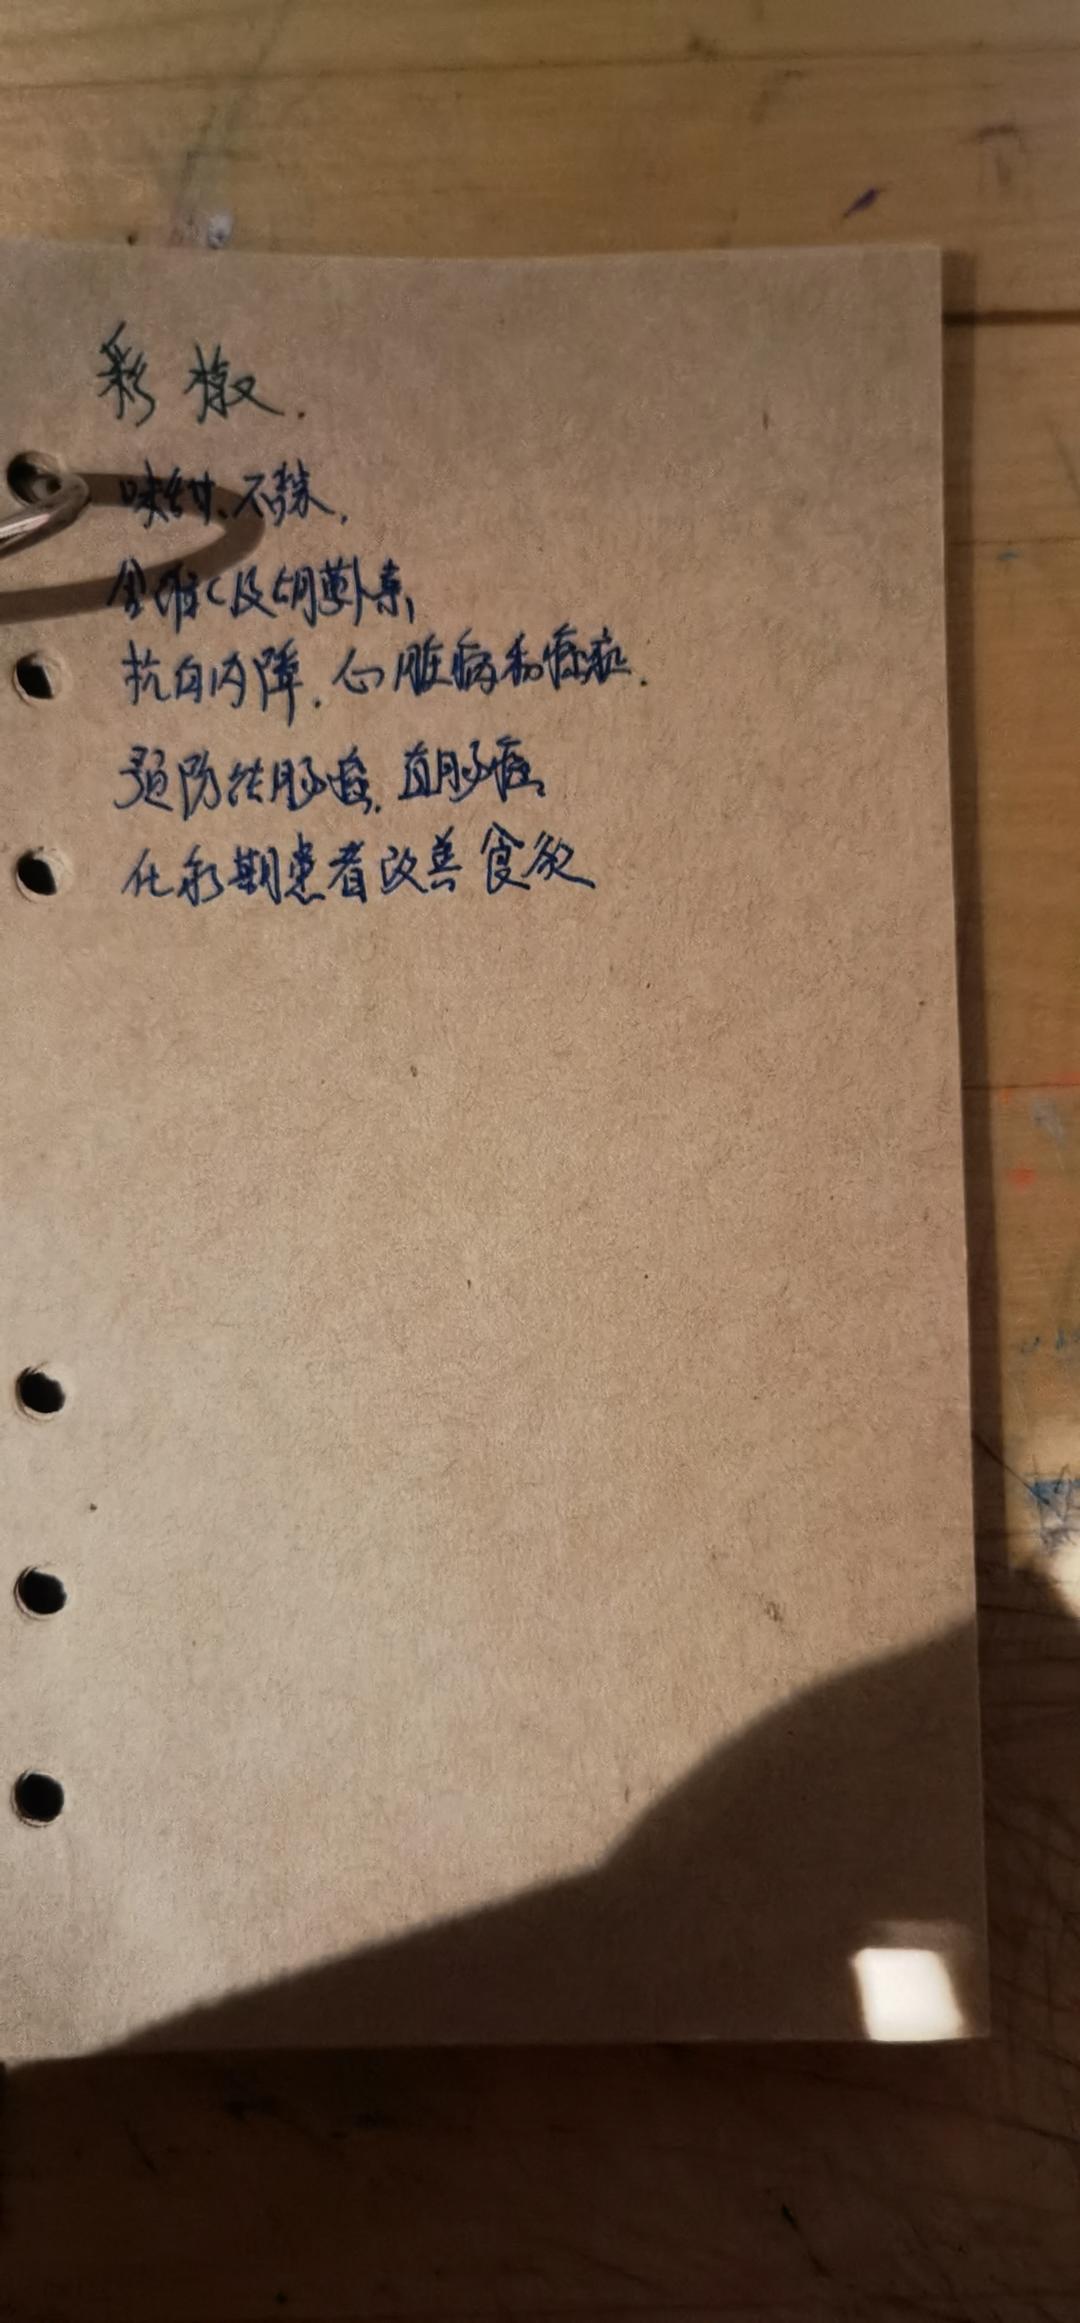 彩椒.
味甘、不辣,
含维C及胡萝卜素,
抗白内障.心脏病和癌症.
预防结肠癌.直肠癌
化疗期患者改善食欲